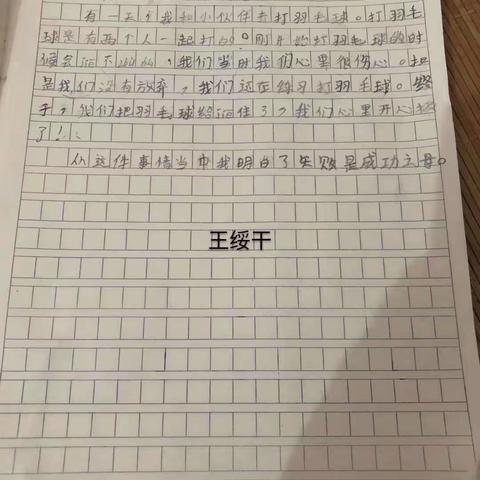 有一天,我和小伙伴去打羽毛球。打羽毛
球是有两个人一起打的。刚开始打羽毛球的时
候会接不住的,我们当时我们心里很伤心。但
是我们没有放弃,我们还在练习打羽毛球。终
于,我们把羽毛球给接住了,我们心里开心极
了!
从这件事情当中我明白了失败是成功之母。
王绥干